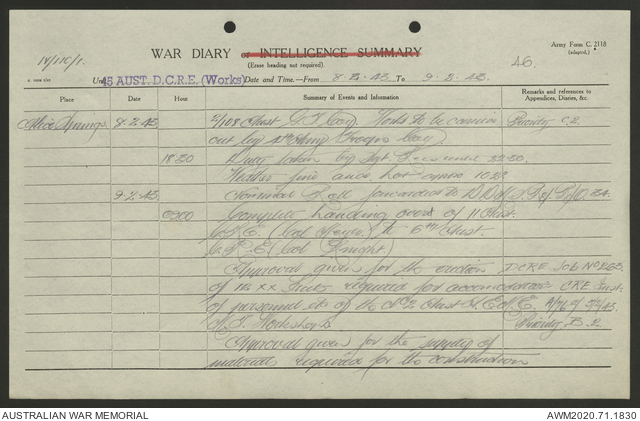 IV/11C/1.
WAR DIARY or INTELLIGENCE SUMMARY
(Erase heading not required).
Army Form C. 2118
(adapted.)
46.
Unit 45 AUST. D.C.R.E. (Works) Date and Time.—From 8.2.43 To 9.2.43.
Place Date Hour Summary of Events and Information Remarks and references to Appendices, Diaries, &c.
Alice Springs 8.2.43 2/108 Aust G.T. Coy. Works to be carried Priority C.2.
out by Army Troops Coy.
1830 Duty taken by Sgt until 2230.
Weather fine and hot
9.2.43 Nominal Roll forwarded to
0900 Complete handing over of 11 Aust.
C.R.E. (Col ) to 6th Aust.
C.R.E. (Col Knight)
Approval given for the erection DCRE JOB No
of xx huts required for accommodation CRE Aust.
of personnel etc of the No 2 Aust of 5/2/43.
Workshops Priority B.2.
Approval given for the supply of
materials required for the construction
AUSTRALIAN WAR MEMORIAL AWM2020.71.1830